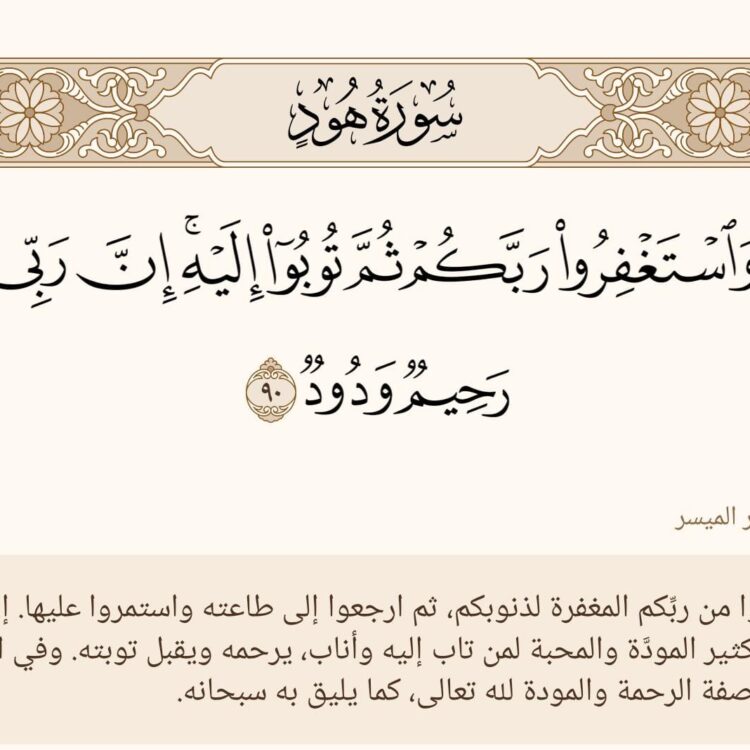 سُورَةُ هُودٍ
وَٱسۡتَغۡفِرُواْ رَبَّكُمۡ ثُمَّ تُوبُوٓاْ إِلَيۡهِۚ إِنَّ رَبِّي
رَحِيمٞ وَدُودٞ ٩٠
الميسر
من ربِّكم المغفرة لذنوبكم، ثم ارجعوا إلى طاعته واستمروا عليها.
كثير المودَّة والمحبة لمن تاب إليه وأناب، يرحمه ويقبل توبته. وفي
صفة الرحمة والمودة لله تعالى، كما يليق به سبحانه.